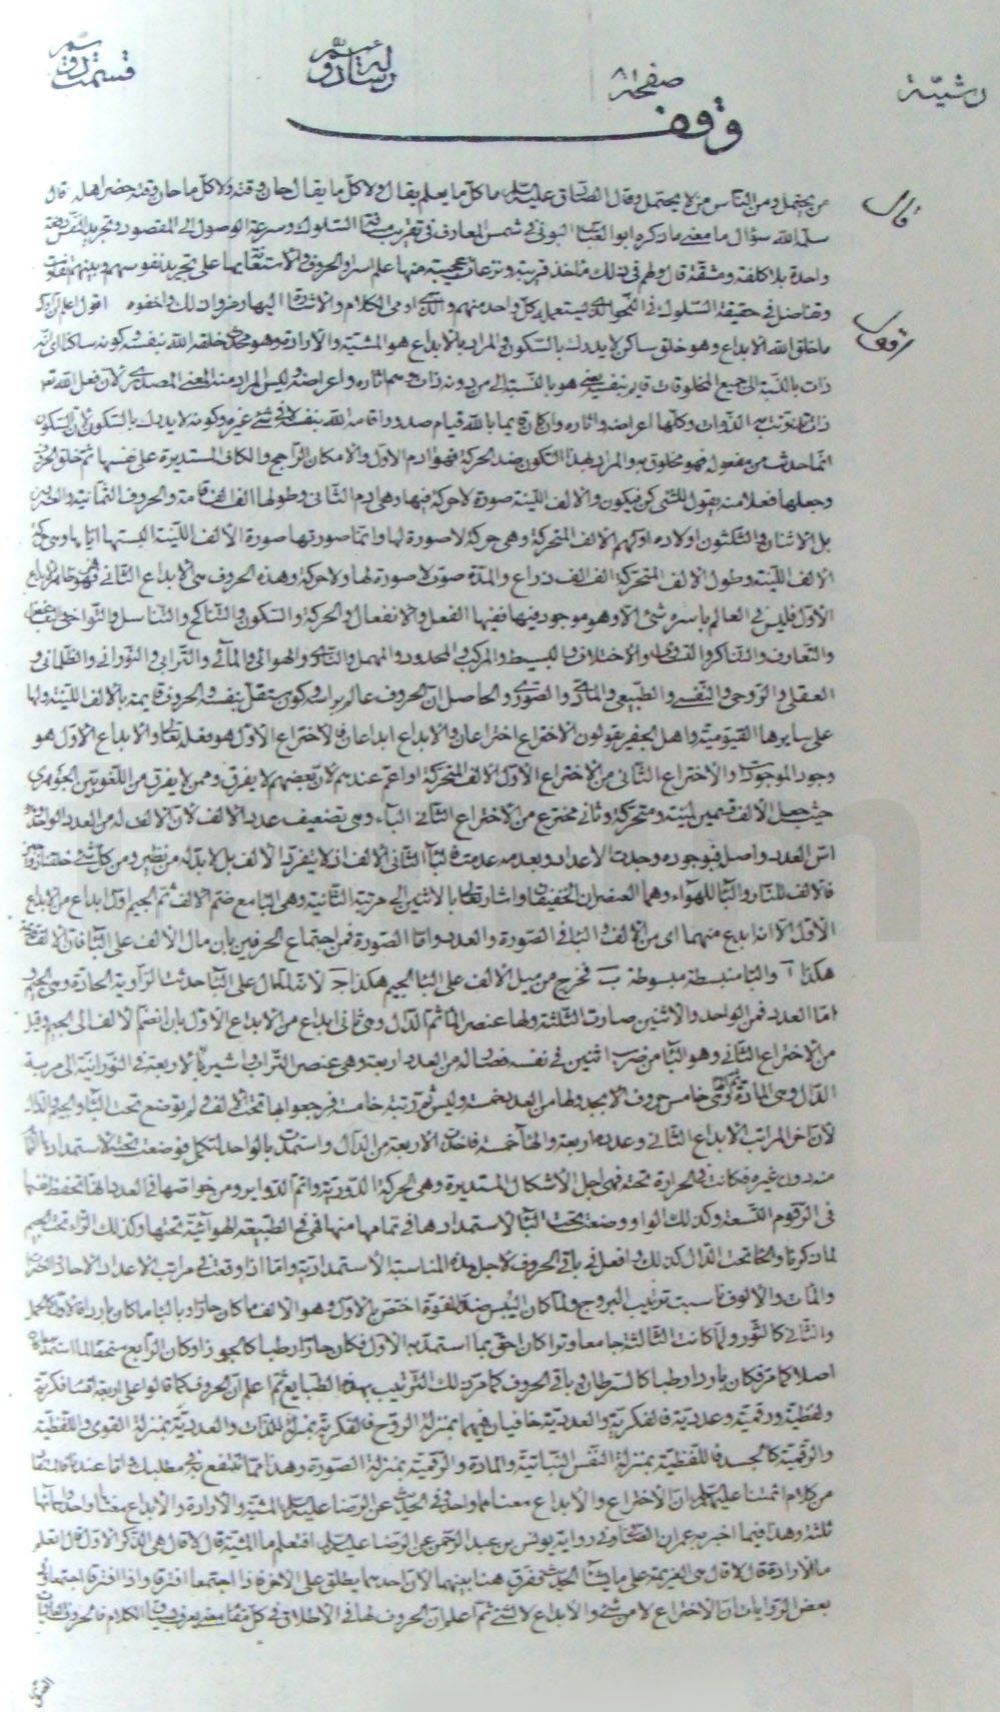 رشتيّة صفحة ١٨ رسالة دوّيم قسمت دوّيم
وقف
من يحتمل ومن الناس من لا يحتمل وقال الصادق عليه السلام ما كل ما يعلم يقال ولا كل ما يقال حان وقته ولا كل ما حان وقته حضر اهله قال
سلمه الله سؤال ما معنى ما ذكره ابو العباس البوني في شمس المعارف في تقريب مسافة السلوك وسرعة الوصول الى المقصود وتجريد النفس دفعة
واحدة بلا كلفة ومشقة قال ولهم في ذلك مآخذ قريبة ونزعات عجيبة منها علم اسرار الحروف والاستعانة بها على تجريد نفوسهم وبينهم تفاوت
وتفاضل في حقيقة السلوك في النحو الذي يستعمله كل واحد منهم والذي اومى الكلام والاشارة اليها رمزوا ذلك واخفوه اقول اعلم ان اول
ما خلق الله الابداع وهو خلق ساكن لا يدرك بالسكون والمراد بالابداع هو المشية والارادة وهو محدث خلقه الله بنفسه وكونه ساكنا لانه
ذات بالنسبة الى جميع المخلوقات قايم بنفسه يعني هو بالنسبة الى من دونه ذات وهم آثاره واعراضه وليس المراد منه المعنى المصدري لان فعل الله تعالى
ذات تذوتت به الذوات وكلها اعراضه وآثاره وان كان قايما بالله قيام صدور اقامه الله بنفسه لا في شيء غيره وكونه لا يدرك بالسكون لان السكون
انما حدث من مفعوله فهو مخلوق به والمراد بهذا السكون ضد الحركة فهو آدم الاول والامكان الراجح والكاف المستديرة على نفسها ثم خلق الحروف
وجعلها فعلا منه يقول للشيء كن فيكون والالف اللينة صورة لا حركة فيها وهي آدم الثاني وطولها الف الف قامة والحروف الثمانية والعشرون
بل الاثنان والثلثون اولاده اولهم الالف المتحركة وهي حركة لا صورة لها وانما صورتها صورة الالف اللينة البستها اياها وهي
الالف اللينة وطول الالف المتحركة الف الف ذراع والمدة صوت لا صورة لها ولا حركة وهذه الحروف هي الابداع الثاني
الاول فليس في العالم باسره شيء الا وهو موجود فيها ففيها الفعل والانفعال والحركة والسكون والتناكح والتناسل والتواخي
والتعارف والتناكر والاختلاف والبسيط والمركب والمحدود والمهمل والناري والهوائي والمائي والترابي والنوراني والظلماني و
العقلي والروحي والنفسي والطبيعي والمادي والصوري والحاصل ان الحروف عالم براسه كون مستقل بنفسه والحروف قايمة بالالف اللينة ولها
على سايرها القيومية واهل الجفر يقولون الاختراع اختراعان والابداع ابداعان فالاختراع الاول هو فعله تعالى والابداع الاول هو
وجود الموجودات والاختراع الثاني من الاختراع الاول الالف المتحركة او اعم عندهم لان بعضهم لا يفرق وممن لا يفرق من اللغويين الجوهري
حيث جعل الالف قسمين لينة ومتحركة وثاني مخترع من الاختراع الثاني الباء وهي تضعيف عدد الالف لان الالف له من العدد الواحد وهو
اس العدد واصله فبوجوده وجدت الاعداد وبعدمه عدمت فالباء الثاني الالف اذ لا ينفرد الالف بل لا بد له من نظير ومن كل شيء خلقنا زوجين
فالالف للنار والباء للهواء وهما العنصران الخفيفان واشار تعالى بالاثنين الى مرتبة الثانية وهي الباء مع ضم الالف ثم الجيم اول ابداع من الابداع
الاول الا انه ابدع منهما اي من الالف والباء في الصورة والعدد واما الصورة فمن اجتماع الحرفين بان مال الالف على الباء فان الالف
هكذا ا والباء منبسطة مبسوطة ب فخرج من ميل الالف على الباء الجيم هكذا ج لانه لما مال على الباء حدثت الزاوية الحادة وهي الجيم و
اما العدد فمن الواحد والاثنين صارت الثلثة ولها عنصر الماء ثم الدال وهي ثاني ابداع من الابداع الاول بان انضم الالف الى الجيم وقيل
من الاختراع الثاني وهو الباء من ضرب اثنين في نفسه فصار له من العدد اربعة وهي عنصر التراب واشير بالاربعة في النورانية الى مرتبة
الدال وهي المادة خامس حروف الابجد ولها من العدد خمسة وليس ثم رتبة خامسة فرجعوا بها تحت الالف ولم توضع تحت الباء والجيم والدال
لان آخر المراتب الابداع الثاني وعدده اربعة والهاء خمسة فاخذت الاربعة من الدال واستمدت بالواحد لتكمل فوضعت تحته لاستمدادها
منه دون غيره فكانت في الحرارة تحته فهي اجل الاشكال المستديرة وهي الحركة الدورية واتم الدواير ومن خواصها في العدد انها تحفظ نفسها
في الرقوم التسعة وكذلك الواو وضعت تحت الباء لاستمدادها في تمامها منها فهي في الطبيعة الهوائية تحتها وكذلك الزاء تحت الجيم
لما ذكرنا والحاء تحت الدال كذلك وافعل في باقي الحروف لاجل هذه المناسبة الاستمدادية واما اذا وقعت في مراتب الاعداد الاحاد والعشرات
والمآت والالوف ناسبت ترتيب البروج ولما كان اليبس ضد القوة اختص بالاول وهو الالف فما كان حارا وبالباء ما كان باردا فالاول كالحمل
والثاني كالثور ولما كانت الثالثة جامعا وترا كان احق بما استمد به الاول فكان حارا رطبا كالجوزا وكان الرابع
اصلا كما مر فكان باردا رطبا كالسرطان وباقي الحروف كما مر ذلك الترتيب بهذه الطبايع ثم اعلم ان الحروف كما قالوا على اربعة اقسام فكرية
ولفظية ورقمية وعددية فالفكرية والعددية خافيان فهما بمنزلة الروح فالفكرية بمنزلة الذات والعددية بمنزلة القوى واللفظية
والرقمية كالجسد فاللفظية بمنزلة النفس النباتية والمادة والرقمية بمنزلة الصورة وهذا مما تنتفع به في مطلبك واما عندنا
من كلام ائمتنا عليهم السلام ان الاختراع والابداع معناهما واحد في الحديث عن الرضا عليه السلام المشية والارادة والابداع معناها واحد واسمائها
ثلثة وهذا فيما اخبر به عمران الصابي وفي رواية يونس بن عبد الرحمن عن الرضا عليه السلام افتعلم ما المشية قال لا قال هي الذكر الاول قال افتعلم
ما الارادة قال لا قال هي العزيمة على ما يشاء الحديث ففرق هنا بينهما لان احدهما يطلق على الاخر اذا اجتمعا افترقا واذا افترقا اجتمعا وفي
بعض الروايات ان الاختراع لا من شيء والابداع لا لشيء ثم اعلم ان الحروف لها في الاطلاق في كل مقام معنى يعرف من الكلام فالحروف
قال
اقول